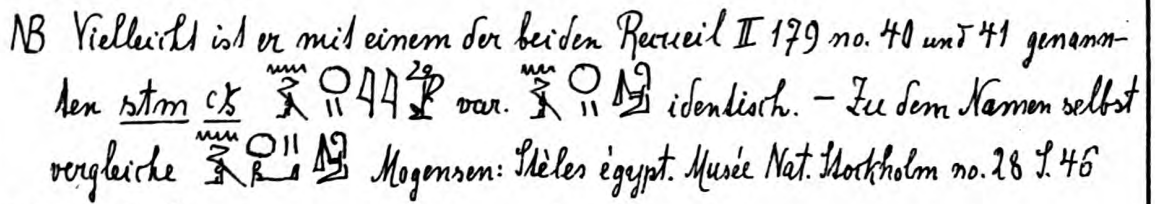 NB Vielleicht ist er mit einem der beiden Recueil II 179 no. 40 und 41 genann-
ten stm var. identisch. – Zu dem Namen selbst
vergleiche Mogensen: Stèles égypt. Musée Nat. Stockholm no. 28 S. 46